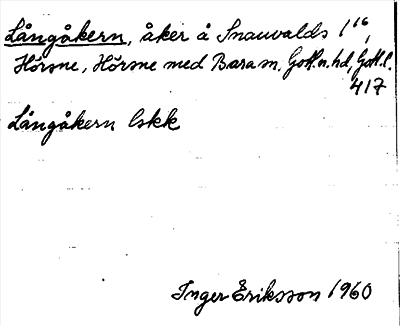 Långåkern, åker å Snauvalds 1¹⁶,
Hörsne, Hörsne med Bara sn, Gotl. n. hd, Gotl. l.
417
Långåkern lskk
Inger Eriksson 1960